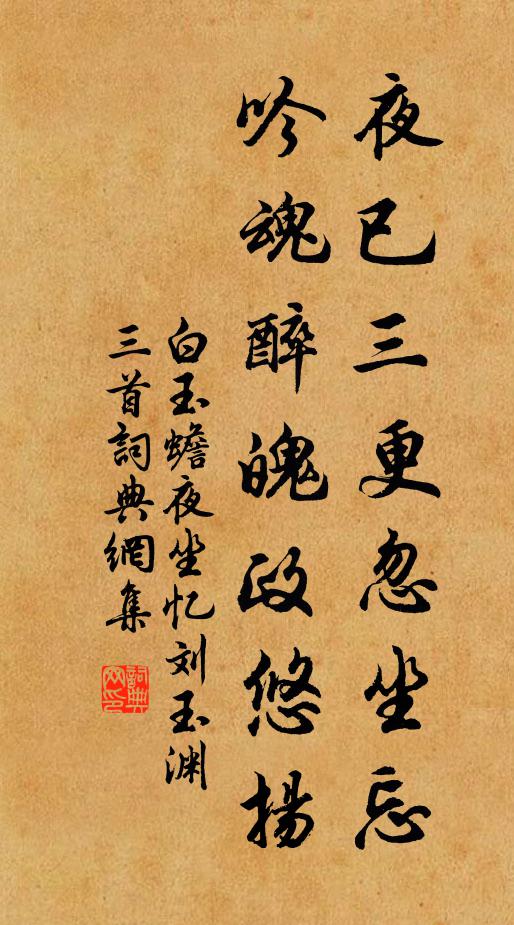 夜已三更忽坐忘
吟魂醉魄政悠揚
白玉蟾夜坐忆刘玉渊
三首詞典網集
詞典
网印